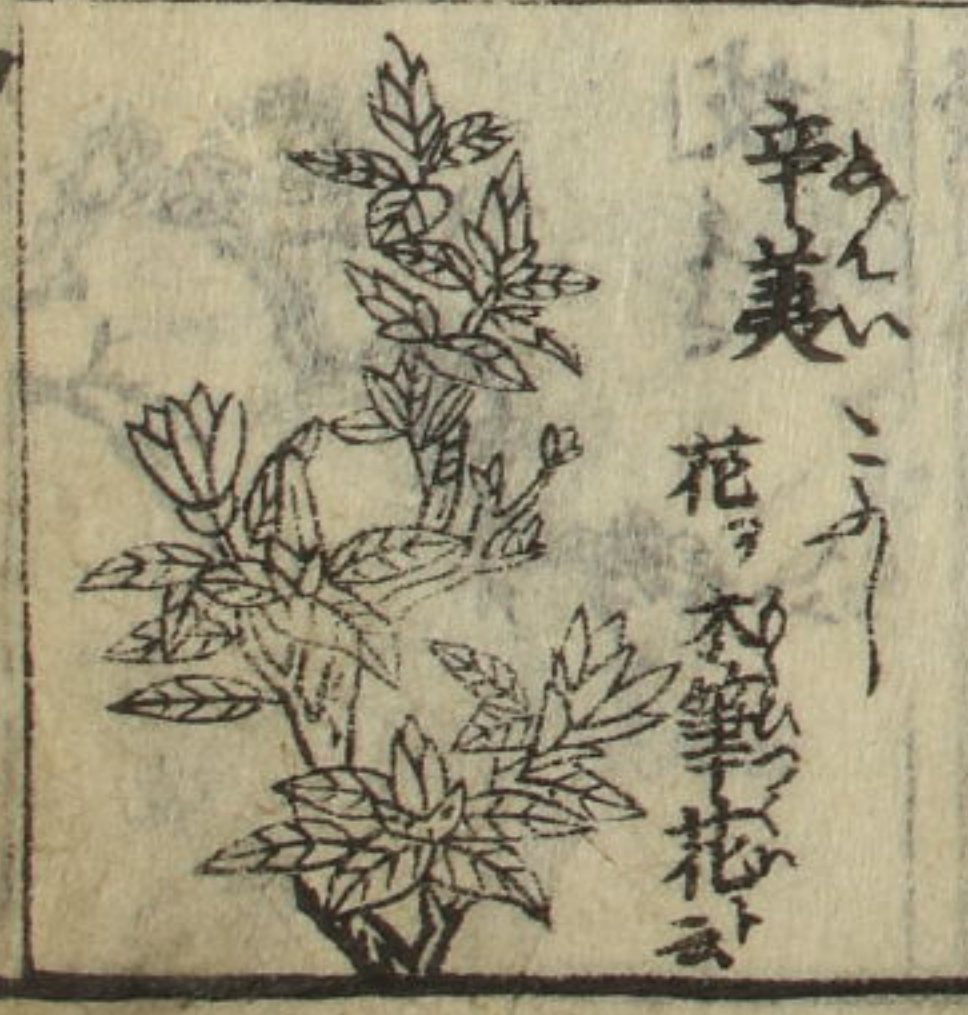 辛荑 しんい
こふし
花ヲ木筆花ト云